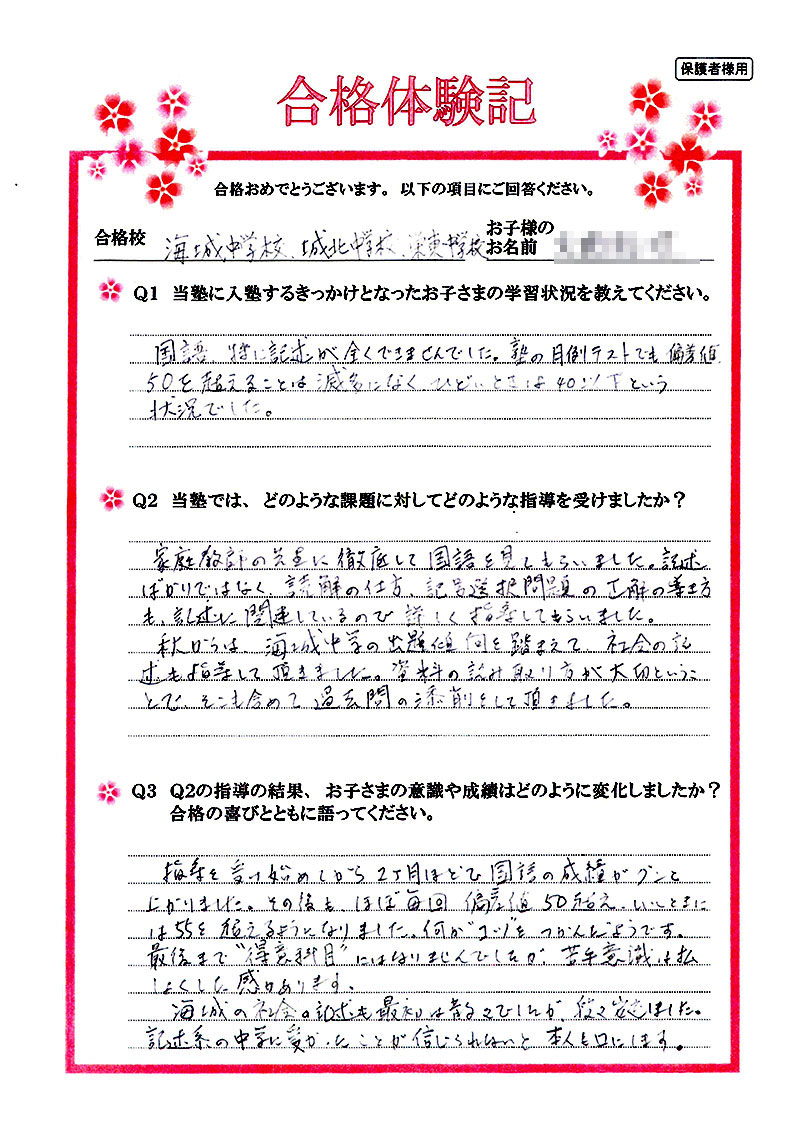 保護者様用
合格体験記
合格おめでとうございます。以下の項目にご回答ください。
合格校 海城中学校、城北中学校、栄東中学校
お子様の
お名前
Q1 当塾に入塾するきっかけとなったお子さまの学習状況を教えてください。
国語、特に記述が全くできませんでした。塾の月例テストでも偏差値
50を超えることは滅多になく、ひどいときは40以下という
状況でした。
Q2 当塾では、どのような課題に対してどのような指導を受けましたか？
家庭教師の先生に徹底して国語を見てもらいました。記述
ばかりではなく、読解の仕方、記号選択問題の正解の導き方
も、記述に関連しているので詳しく指導してもらいました。
秋からは、海城中学の出題傾向を踏まえて、社会の記
述も指導して頂きました。資料の読み取り方が大切というこ
とで、そこも含めて過去問の添削をして頂きました。
Q3 Q2の指導の結果、お子さまの意識や成績はどのように変化しましたか？
合格の喜びとともに語ってください。
指導を受け始めてから2ヶ月ほどで国語の成績がグンと
上がりました。その後も、ほぼ毎回偏差値50超え、いいときに
は55を超えるようになりました。何か"コツ"をつかんだようです。
最後まで"得意科目"にはなりませんでしたが、苦手意識は払
しょくした感があります。
海城の社会の記述も最初は散々でしたが、段々安定しました。
記述系の中学に受かったことが信じられないと本人も口にします。